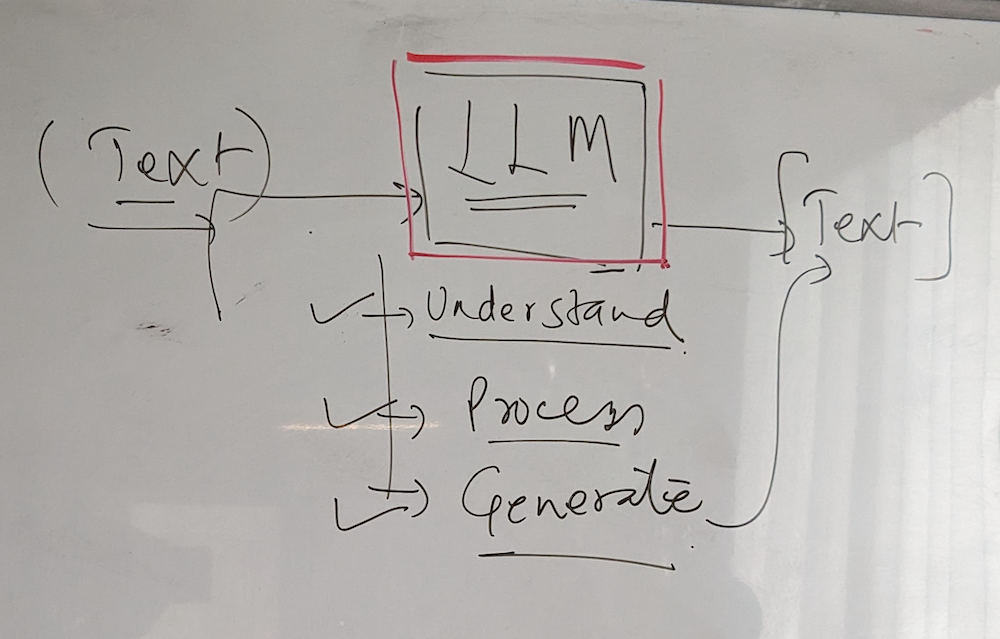 (Text)
LLM
[Text]
Understand
Process
Generate